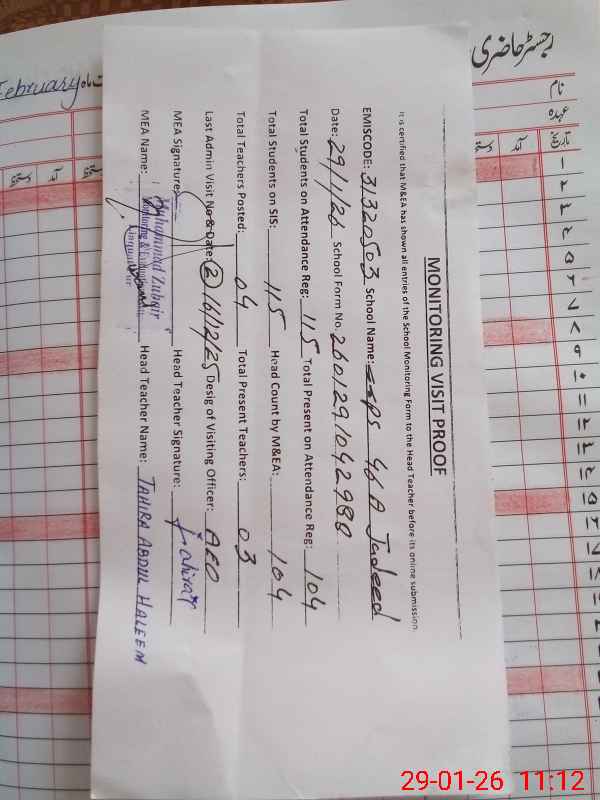 رجسٹر حاضری
نام
عہدہ
تاریخ
آمد
February
MONITORING VISIT PROOF
It is certified that M&EA has shown all entries of the School Monitoring Form to the Head Teacher before its online submission.
EMISCODE: 31320503 School Name: GGPS 46 A Jadeed
Date: 29/1/26 School Form No. 2601291042980
Total Students on Attendance Reg: 115 Total Present on Attendance Reg: 104
Total Students on SIS: 115 Head Count by M&EA: 104
Total Teachers Posted: 04 Total Present Teachers: 03
Last Admin Visit No & Date: (2) 16/12/25 Desig of Visiting Officer: AEO
MEA Signature: Head Teacher Signature: Tahira
MEA Name: Muhammad Zubair Head Teacher Name: TAHIRA ABDUL HALEEM
29-01-26 11:12